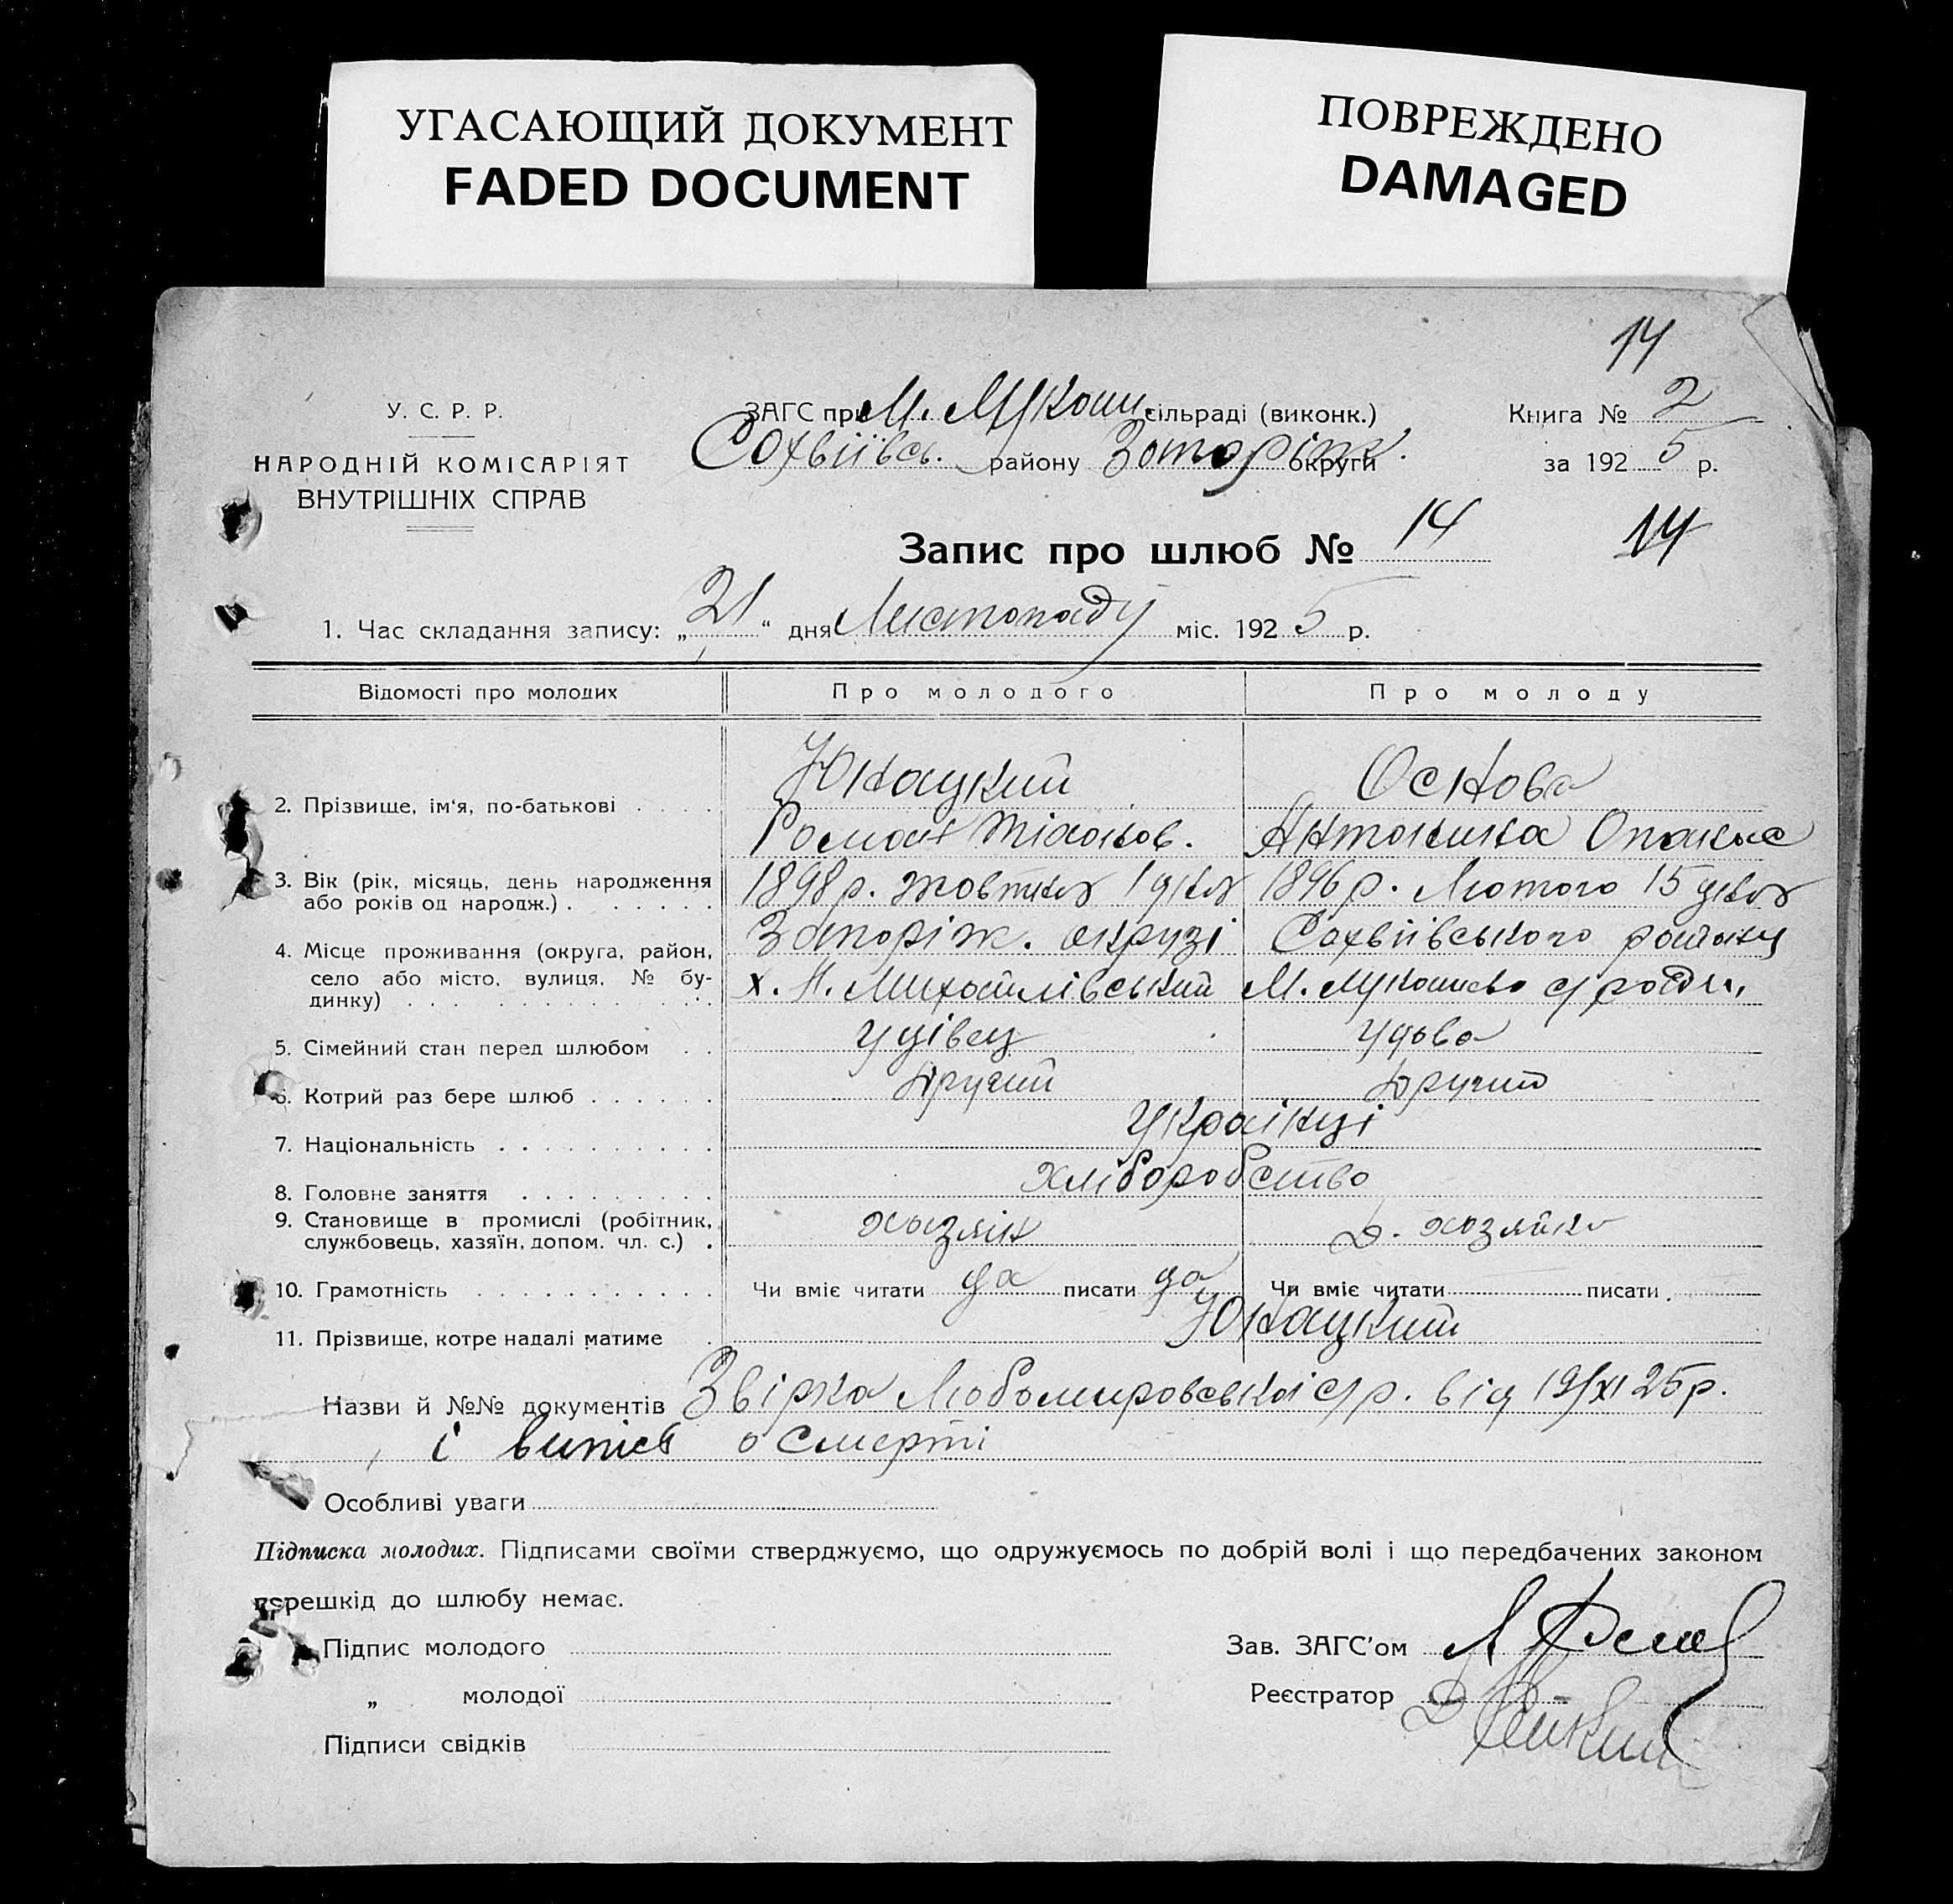 УГАСАЮЩИЙ ДОКУМЕНТ
FADED DOCUMENT
ПОВРЕЖДЕНО
DAMAGED
14
У. С. Р. Р.
НАРОДНІЙ КОМІСАРІЯТ
ВНУТРІШНІХ СПРАВ
ЗАГС при М. Мукош. сільраді (виконк.)
Софіївсь. району Запоріж. округи
Книга № 2
за 1925 р.
Запис про шлюб № 14
14
1. Час складання запису: „21“ дня Листопаду міс. 1925 р.
Відомості про молодих
Про молодого
Про молоду
2. Прізвище, ім'я, по-батькові
Юнацкий
Роман
Основа
Антонина Опанас
3. Вік (рік, місяць, день народження
або років од народж.)
1898 р. жовтня 1 дня
1896 р. Лютого 15 дня
4. Місце проживання (округа, район,
село або місто, вулиця, № бу-
динку)
Запоріж. окрузі Софіївського району
х. Н. Михайлівський М. с/ради,
5. Сімейний стан перед шлюбом
удівец
удова
6. Котрий раз бере шлюб
другий
другий
7. Національність
Українці
8. Головне заняття
хліборобство
9. Становище в промислі (робітник,
службовець, хазяїн, допом. чл. с.)
хозяін
д. хозяйка
10. Грамотність
Чи вміє читати да писати да
Чи вміє читати писати
11. Прізвище, котре надалі матиме
Юнацкий
Назви й №№ документів Звірка Любомировської с/р. від 19/XI 25 р.
і випись о смерті
Особливі уваги
Підписка молодих. Підписами своїми стверджуємо, що одружуємось по добрій волі і що передбачених законом
перешкід до шлюбу немає.
Підпис молодого
„ молодої
Підписи свідків
Зав. ЗАГС'ом
Реєстратор